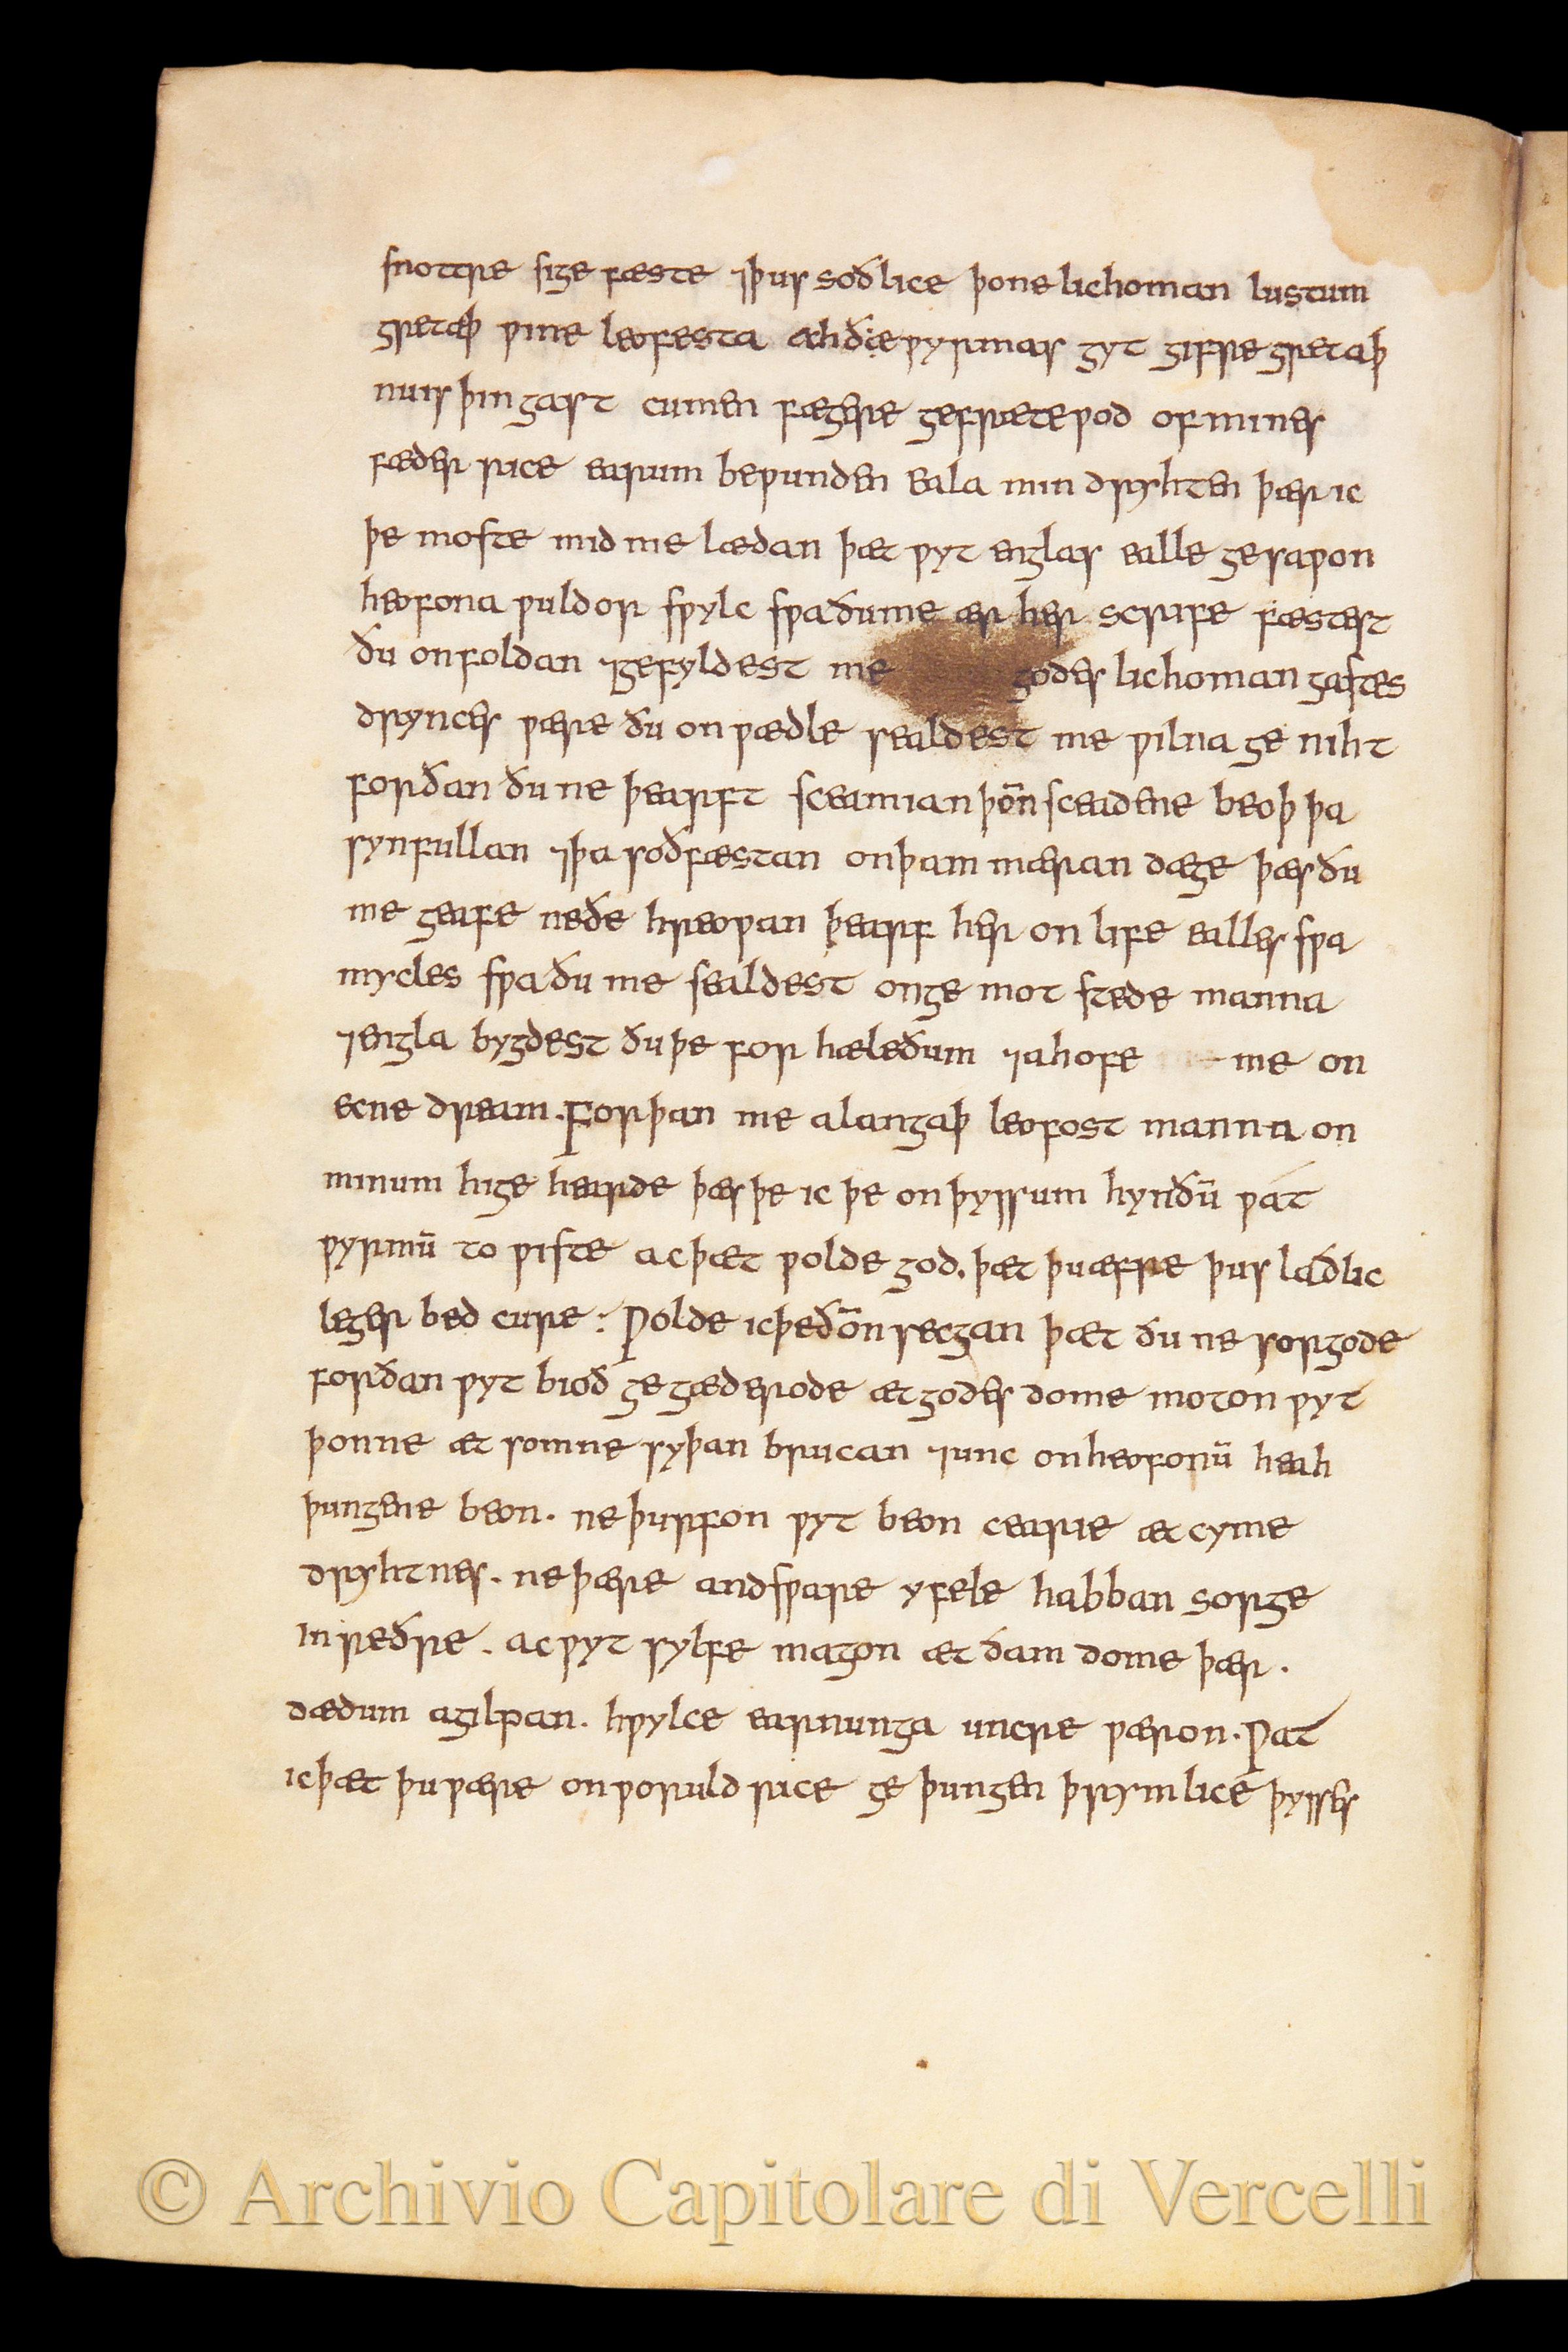 snottre sige fæste ⁊þus soðlice þone lichoman lustum
gretaþ ƿine leofesta æhðie ƿyrmas gyt gifre gretaþ
nuis þin gast cumen fægere gefrætewod of mines
fæder rice earum beƿunden eala min dryhten þær ic
þe moste mid me lædan þæt ƿyt englas ealle gesaƿon
heofona ƿuldor sƿylc sƿa ðume ær her scrife fæstest
ðu onfoldan ⁊gefyldest me godes lichoman gastes
drynces ƿære ðu on ƿædle sealdest me ƿilna ge niht
forðan ðu ne þearft sceamian þoñ sceadene beoþ þa
synfullan ⁊þa soðfæstan onþam mæran dæge þæs ðu
me geafe neðe hreoƿan þearf her on life ealles sƿa
mycles sƿa ðu me sealdest onge mot stede manna
⁊engla bygdest ðu þe for hæleðum ⁊ahofe me on
ecne dream. Forþan me a langaþ leofost manna on
minum hige hearde þæs þe ic þe on þyssum hynðū ƿat
ƿyrmū to ƿiste ac þæt ƿolde god. þæt þu æfre þus laðlic
leger bed cure: Ƿolde ic þe ðoñ secgan þæt ðu ne sorgode
forðan ƿyt bioð ge gæderode æt godes dome moton ƿyt
þonne æt somne syþan brucan ⁊unc on heofonū heah
þungene beon. ne þurfon ƿyt beon cearie æt cyme
dryhtnes. ne þære andsƿare yfele habban sorge
in reðre. ac ƿyt sylfe magon æt ðam dome þær.
dædum agilpan. hƿylce earnunga uncre ƿæron. Ƿat
ic þæt þu ƿære on ƿoruld rice ge þungen þrymlice þysses
© Archivio Capitolare di Vercelli